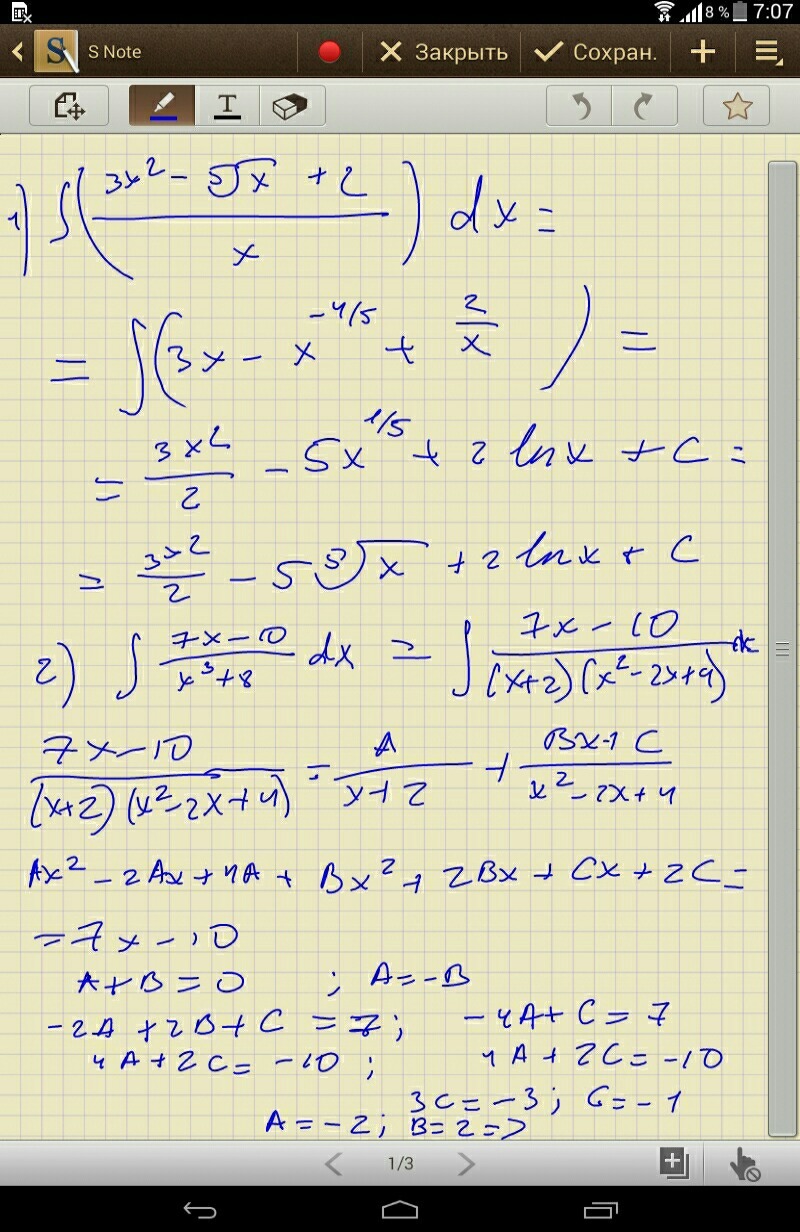 8 % 7:07
S Note Закрыть Сохран.
T
1) ∫((3x² - ⁵√x + 2)/x) dx =
= ∫(3x - x^(-4/5) + 2/x) =
= 3x²/2 - 5x^(1/5) + 2 ln x + C =
= 3x²/2 - 5 ⁵√x + 2 ln x + C
2) ∫ (7x-10)/(x³+8) dx = ∫ (7x-10)/((x+2)(x²-2x+4)) dx
(7x-10)/((x+2)(x²-2x+4)) = A/(x+2) + (Bx+C)/(x²-2x+4)
Ax² - 2Ax + 4A + Bx² + 2Bx + Cx + 2C =
= 7x - 10
A + B = 0 ; A = -B
-2A + 2B + C = 7; -4A + C = 7
4A + 2C = -10 ; 4A + 2C = -10
3C = -3; C = -1
A = -2; B = 2 =>
1/3